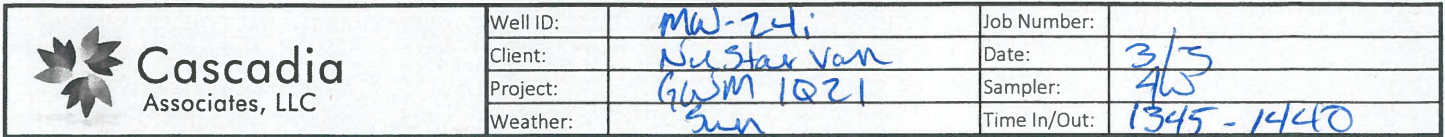 Cascadia
Associates, LLC
Well ID: MW-24i Job Number:
Client: NuStar Van Date: 3/3
Project: GWM 1Q21 Sampler:
Weather: Sun Time In/Out: 1345 - 1440